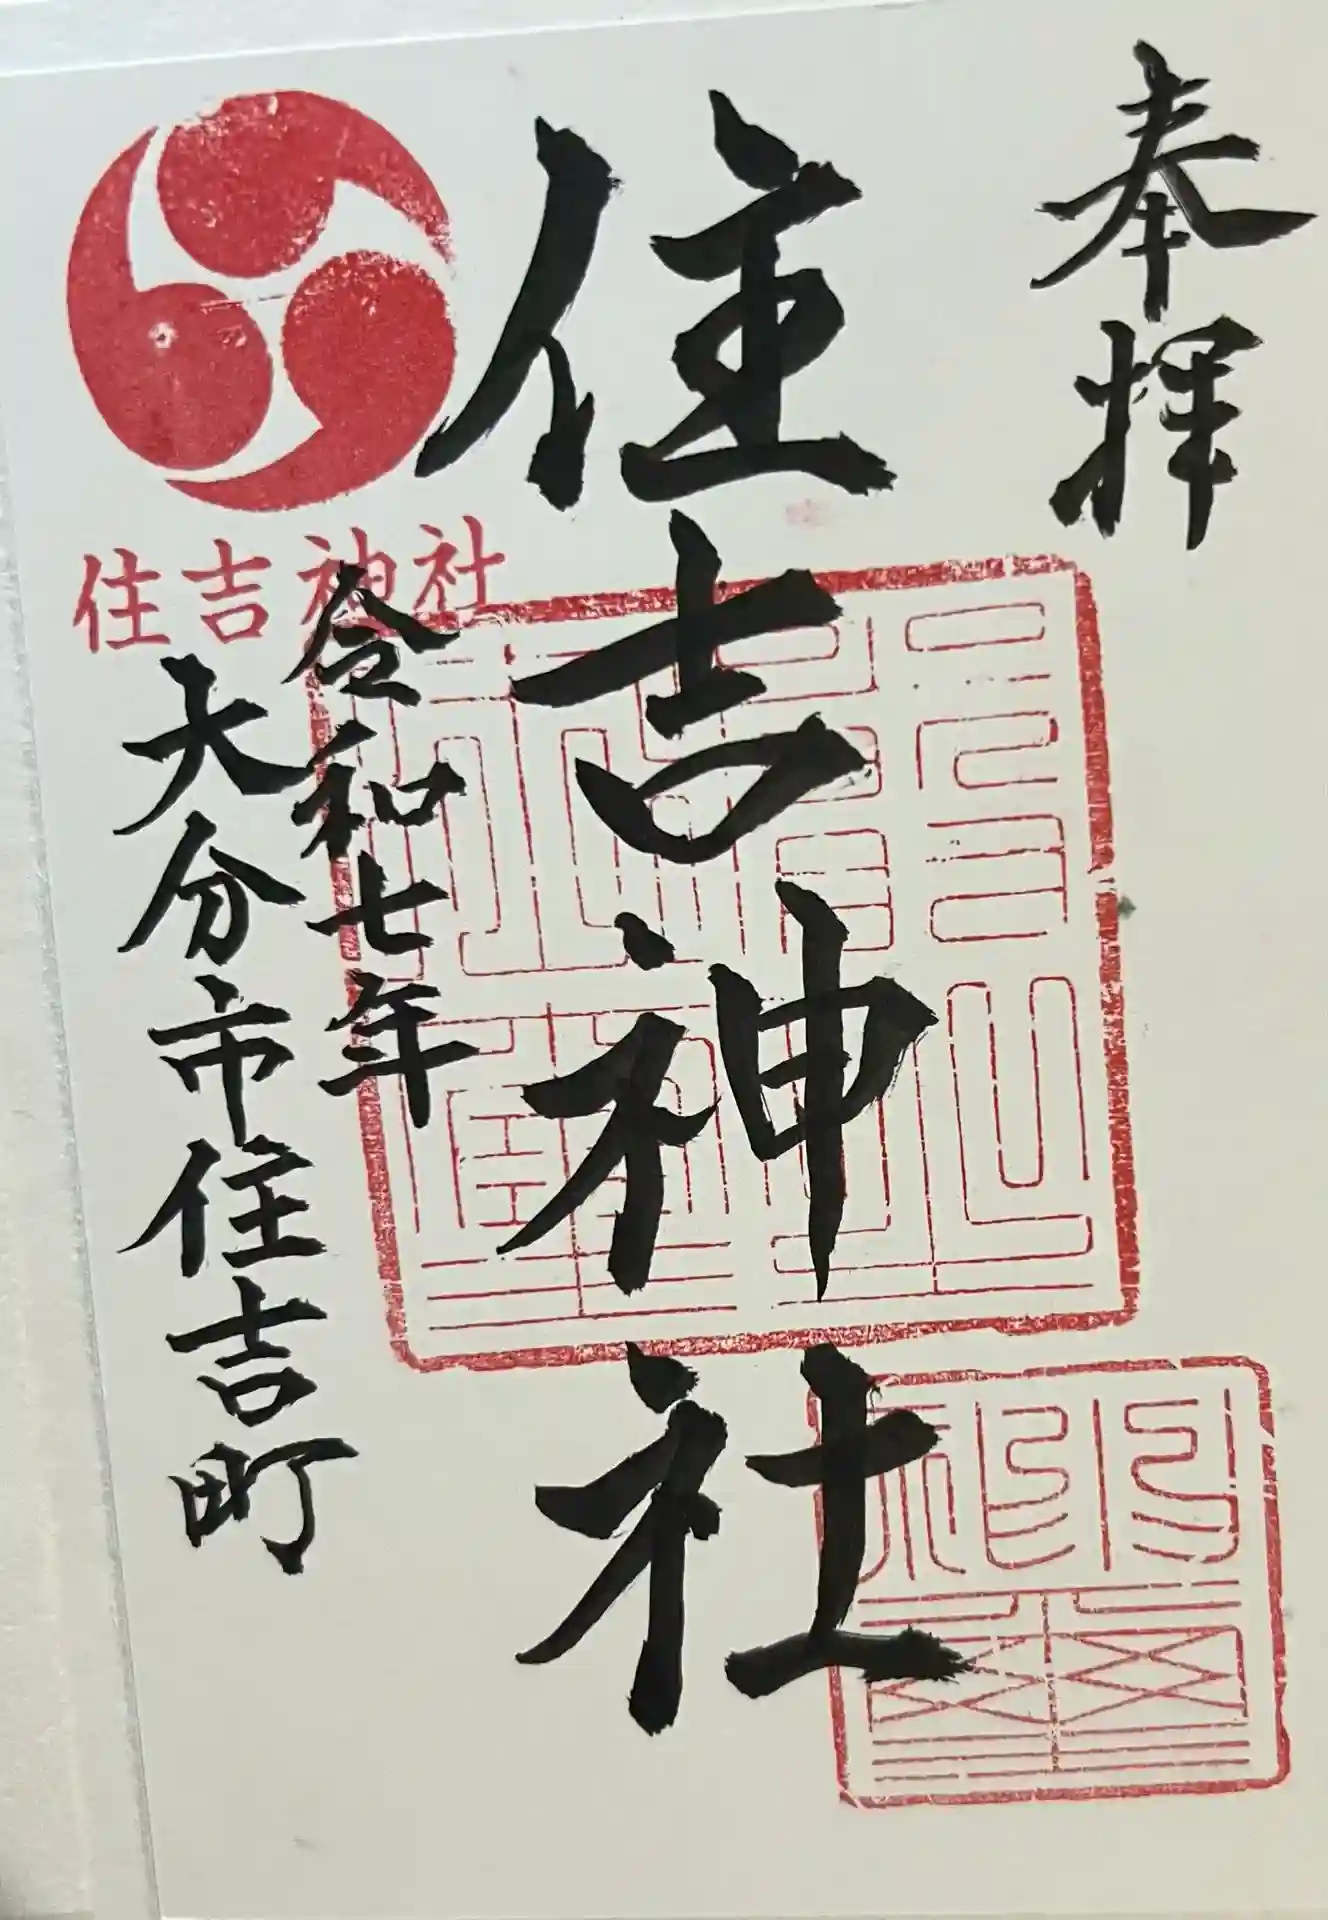 奉拝
住吉神社
令和七年
大分市住吉町
住吉神社